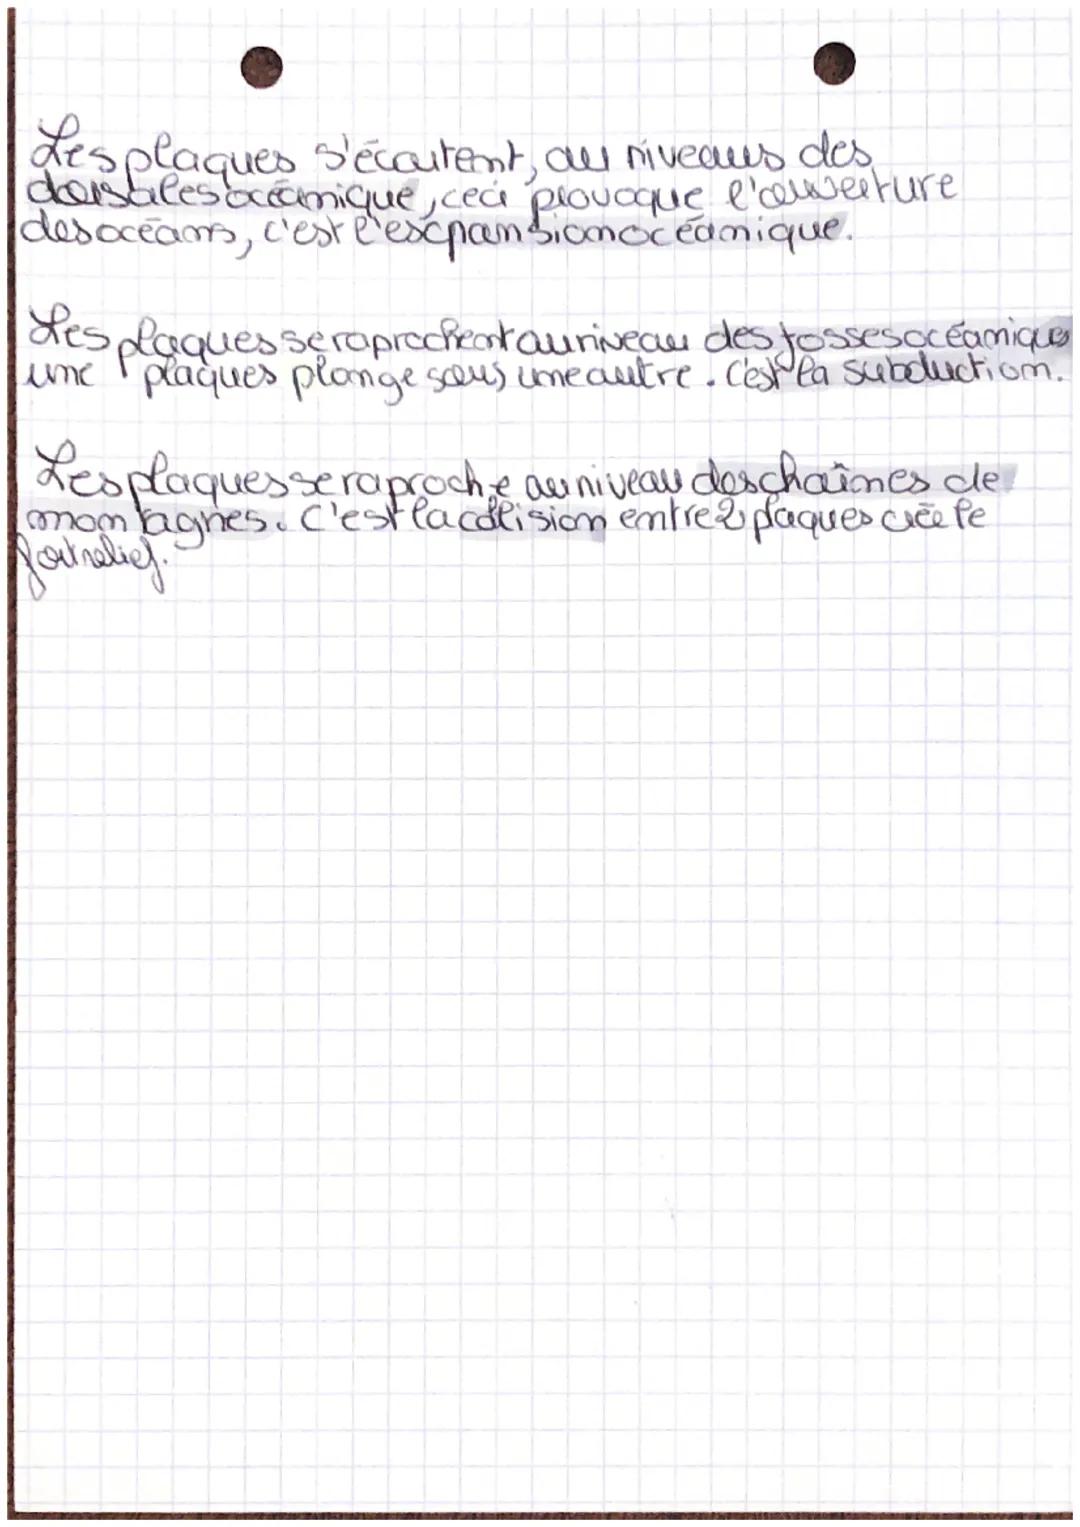 Les plaques s'écartent, au niveaus des
dorsales océanique, ceci provoque l'ouverture
des océans, c'est l'escpansion océanique.
Les plaques se raprochent au niveau des fosses océaniques
une plaques plonge sous une autre. C'est la subduction.
Les plaques se raproche au niveau des chaînes de
montagnes. C'est la collision entre 2 plaques crée le
fort relief.